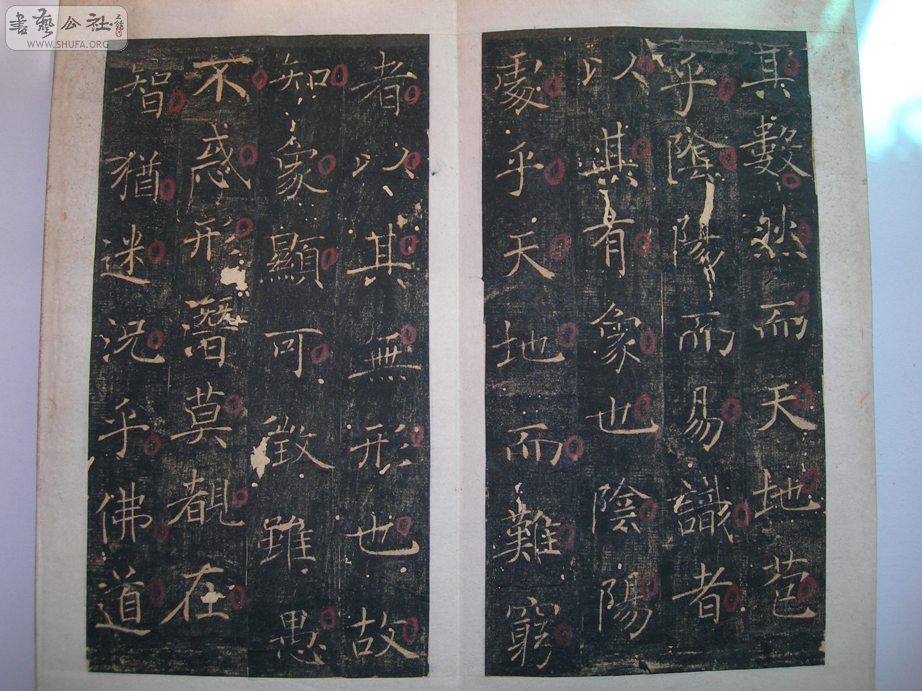 書藝公社
WWW.SHUFA.ORG
其數然而天地苞
乎陰陽而易識者
以其有象也陰陽
處乎天地而難窮
者以其無形也故
知象顯可徵雖愚
不惑形潛莫覩在
智猶迷況乎佛道